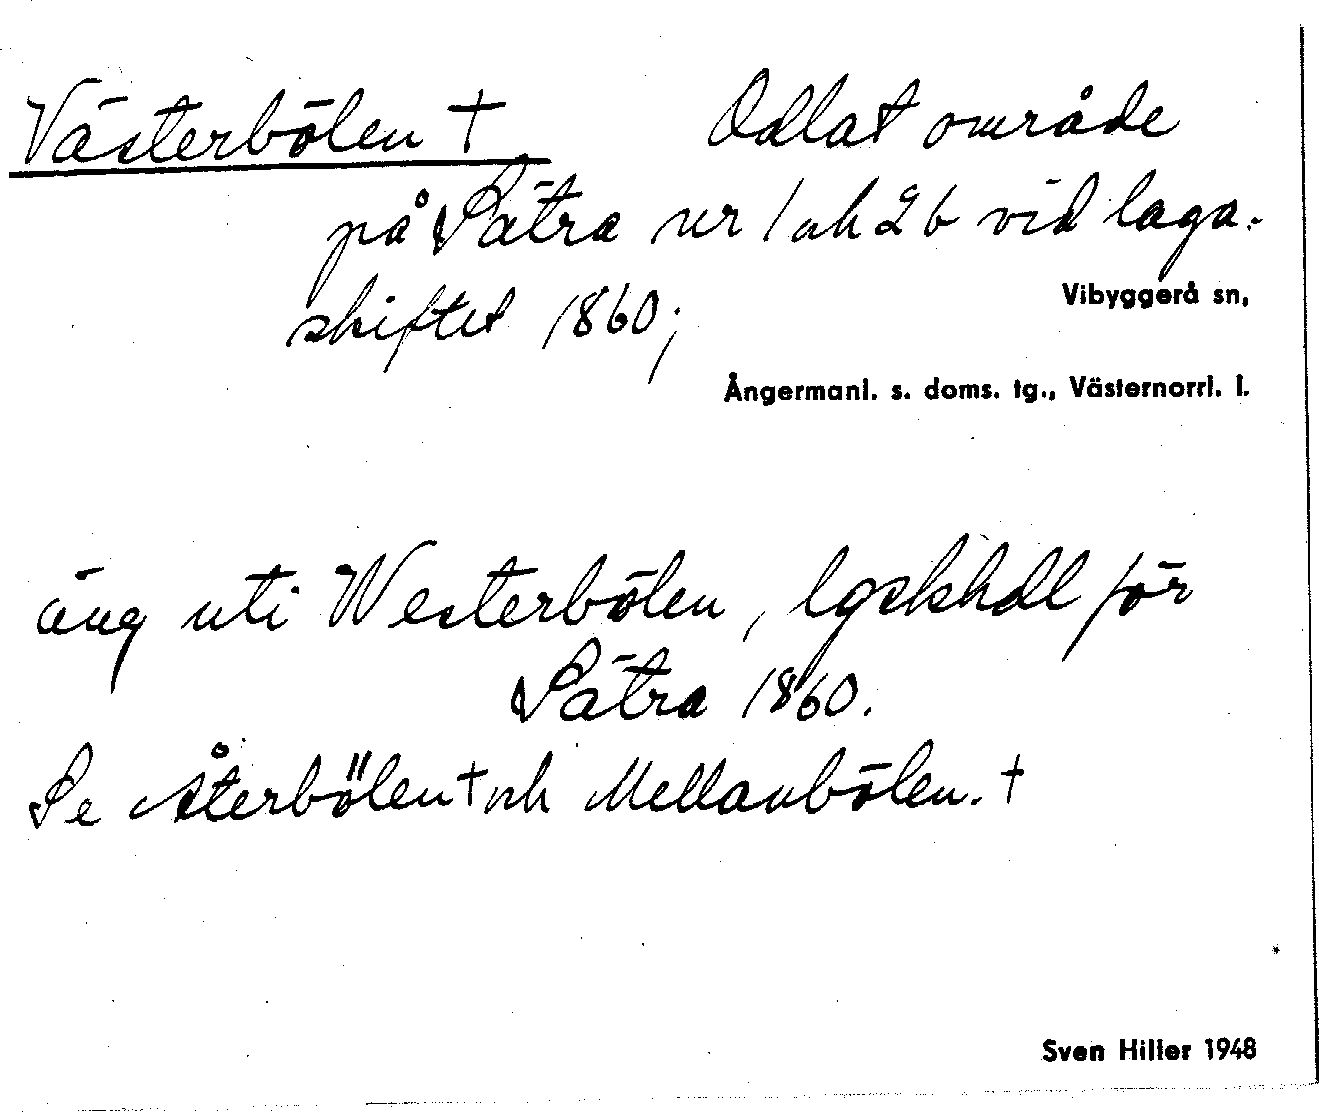 Västerbölen † Odlat område
på Sätra nr 1 och 2b vid laga-
skiftet 1860;
Vibyggerå sn,
Ångermanl. s. doms. tg., Västernorrl. l.
äng uti Westerbölen, lgskhdl för
Sätra 1860.
Se Återbölen † och Mellanbölen. †
Sven Hiller 1948